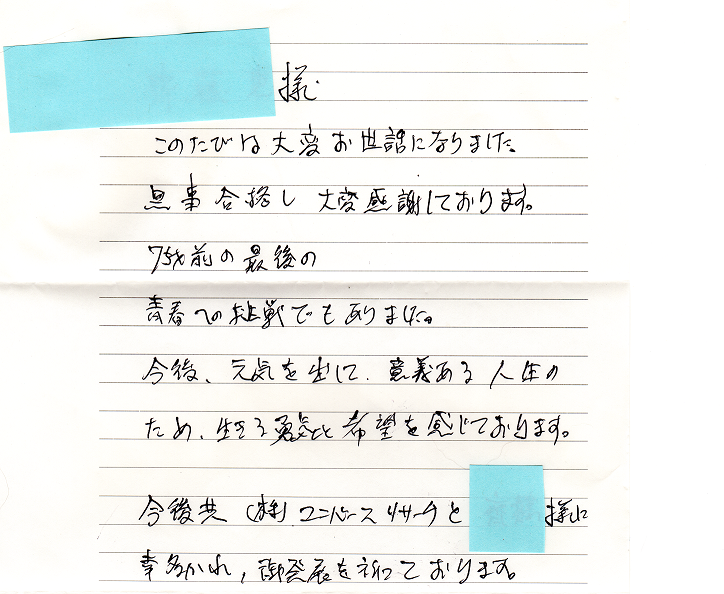 様
このたびは大変お世話になりました。
無事合格し 大変感謝しております。
75才前の最後の
青春への挑戦でもありました。
今後、元気を出して、意義ある人生の
ため、生きる勇気と希望を感じております。
今後共 (株)ユニバースリサーチと 様に
幸多かれ,御発展を祈っております。